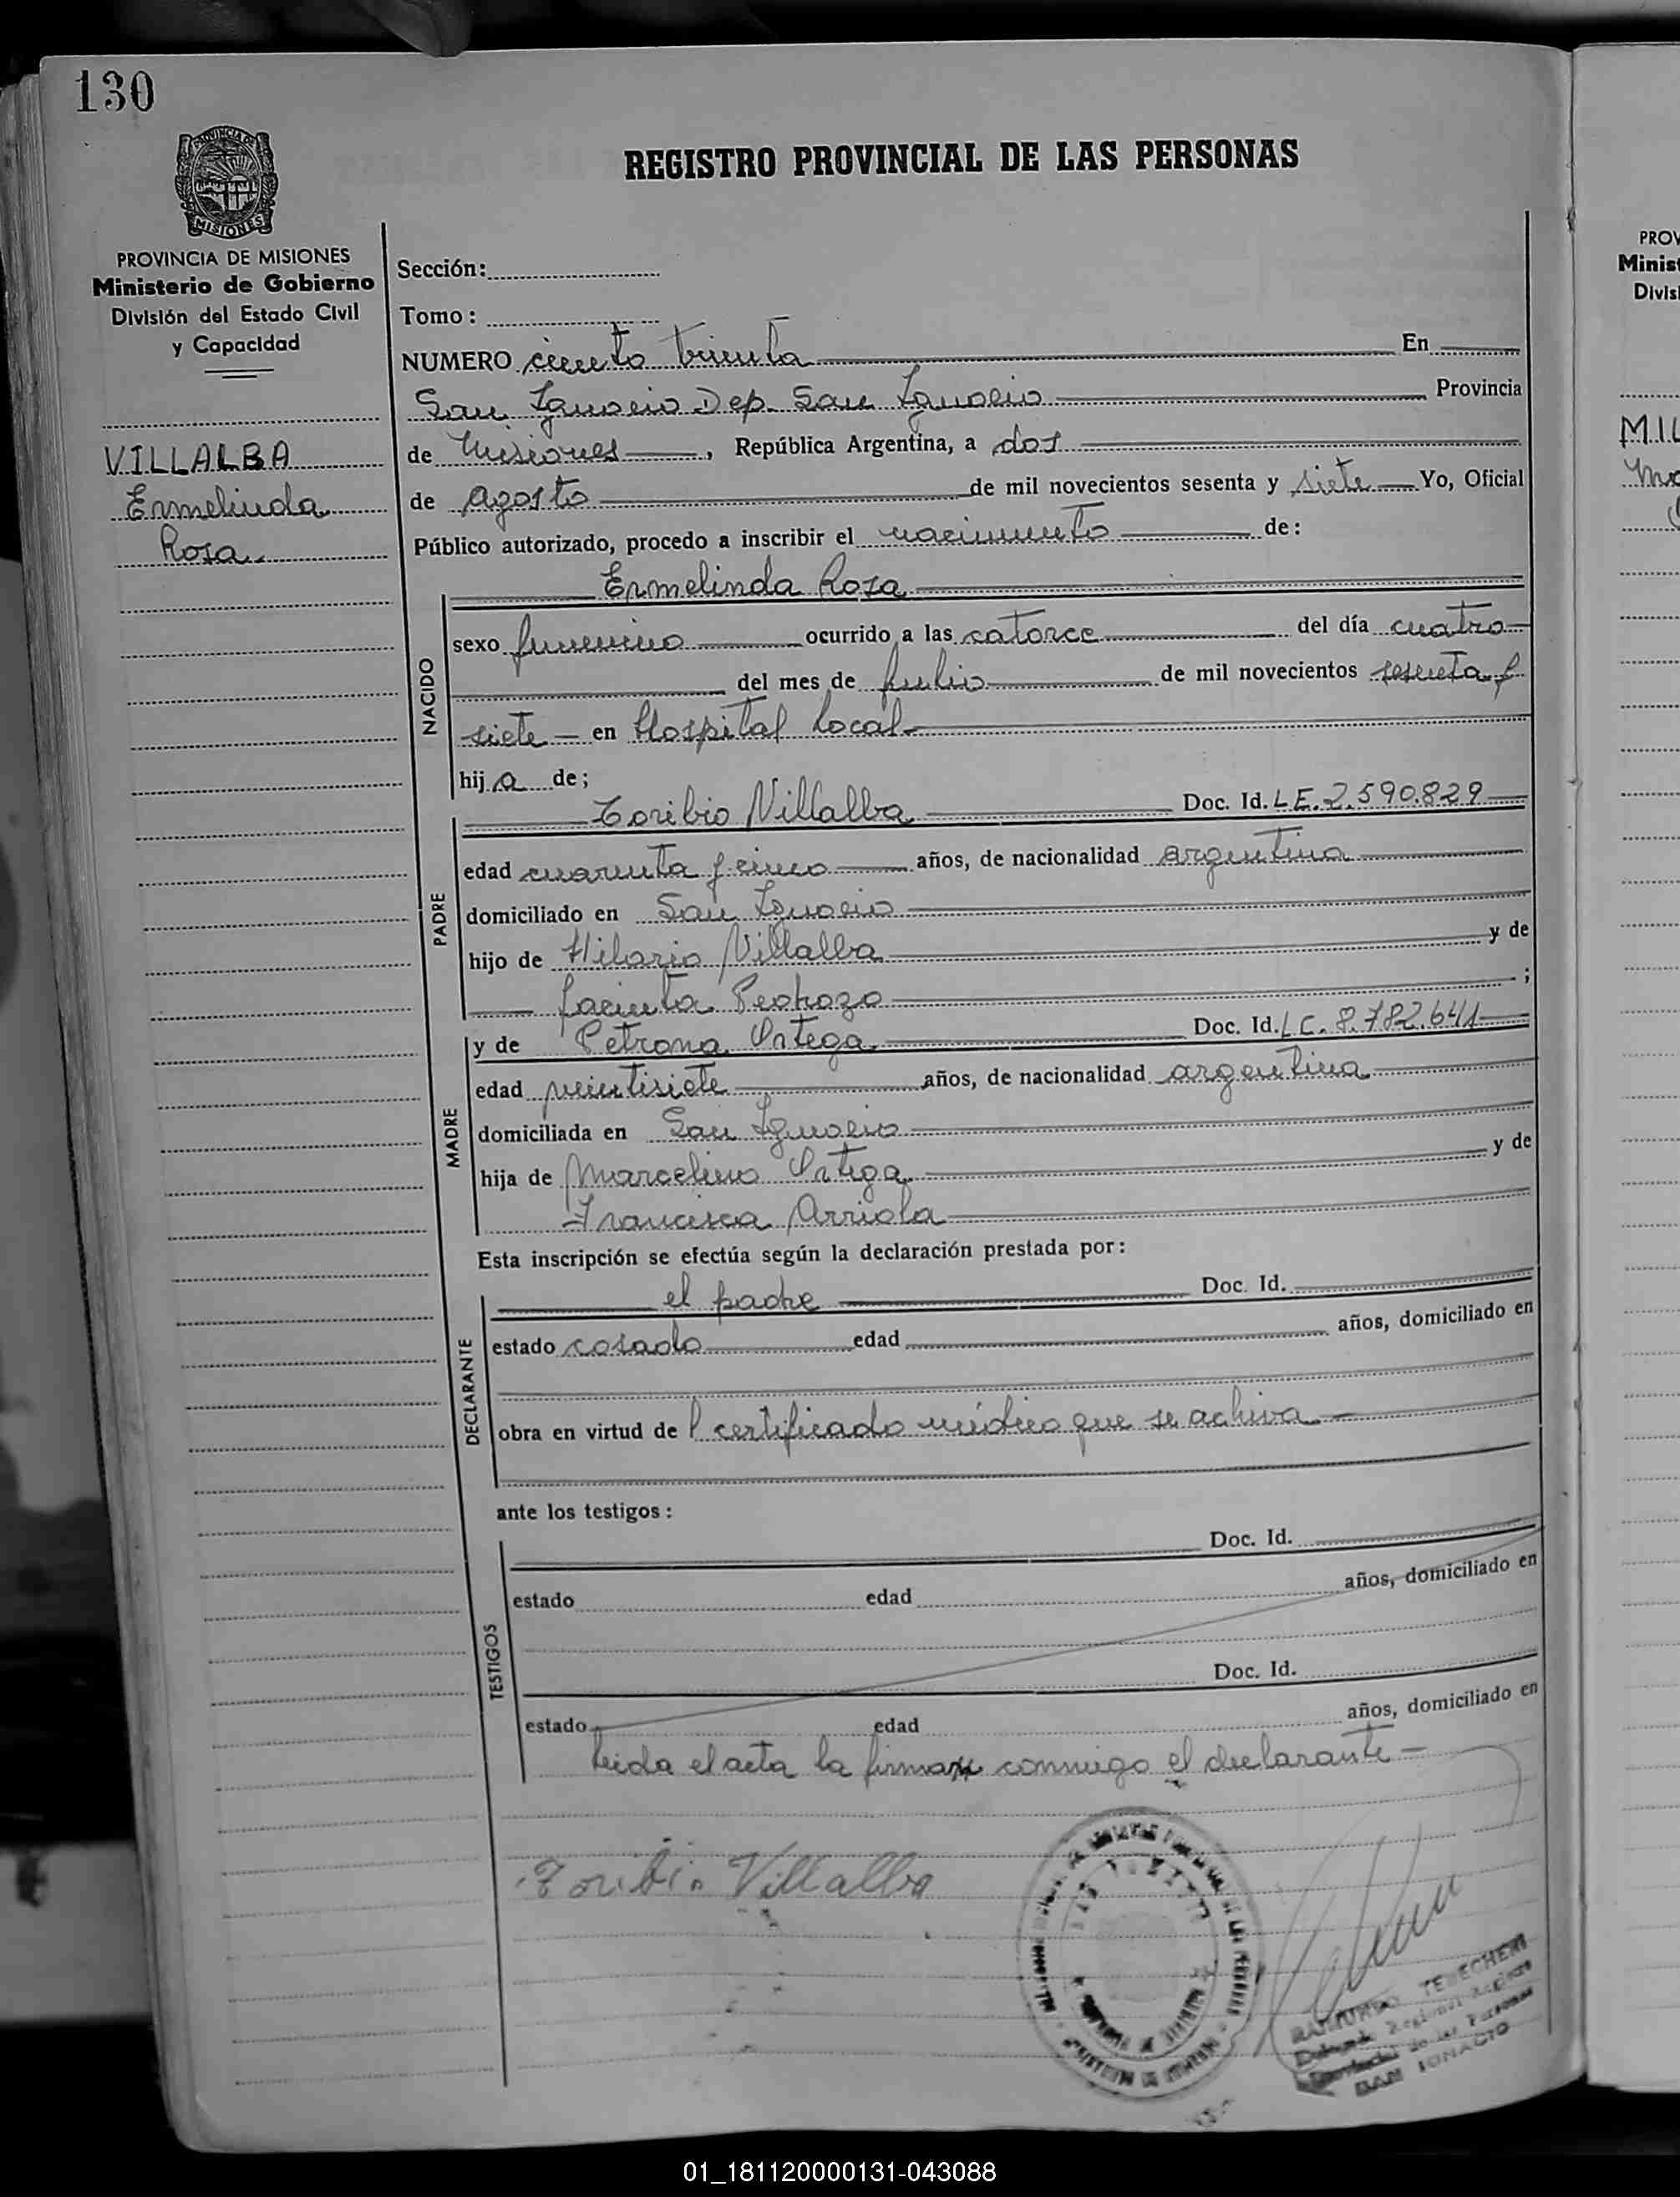 130
PROVINCIA DE
MISIONES
REGISTRO PROVINCIAL DE LAS PERSONAS
PROVINCIA DE MISIONES
Ministerio de Gobierno
División del Estado Civil
y Capacidad
VILLALBA
Ermelinda
Rosa
Sección:
Tomo:
NUMERO ciento treinta En
San Ignacio Dep. San Ignacio Provincia
de Misiones, República Argentina, a dos
de agosto de mil novecientos sesenta y siete Yo, Oficial
Público autorizado, procedo a inscribir el nacimiento de:
Ermelinda Rosa
NACIDO
sexo femenino ocurrido a las catorce del día cuatro
del mes de julio de mil novecientos sesenta y
siete en Hospital Local
hija de;
PADRE
Toribio Villalba Doc. Id. L.E. 2.590.829
edad cuarenta y cinco años, de nacionalidad argentina
domiciliado en San Ignacio
hijo de Hilario Villalba y de
Jacinta Pedrozo ;
MADRE
y de Petrona Ortega Doc. Id. L.C. 8.782.641
edad veintisiete años, de nacionalidad argentina
domiciliada en San Ignacio
hija de Marcelino Ortega y de
Francisca Arriola
Esta inscripción se efectúa según la declaración prestada por:
DECLARANTE
el padre Doc. Id.
estado casado edad años, domiciliado en
obra en virtud del certificado médico que se achiva
ante los testigos:
TESTIGOS
Doc. Id.
estado edad años, domiciliado en
Doc. Id.
estado edad años, domiciliado en
leida el acta la firma conmigo el declarante
Toribio Villalba
SAN IGNACIO
PROV
Minist
Divis
MIL
01_181120000131-043088